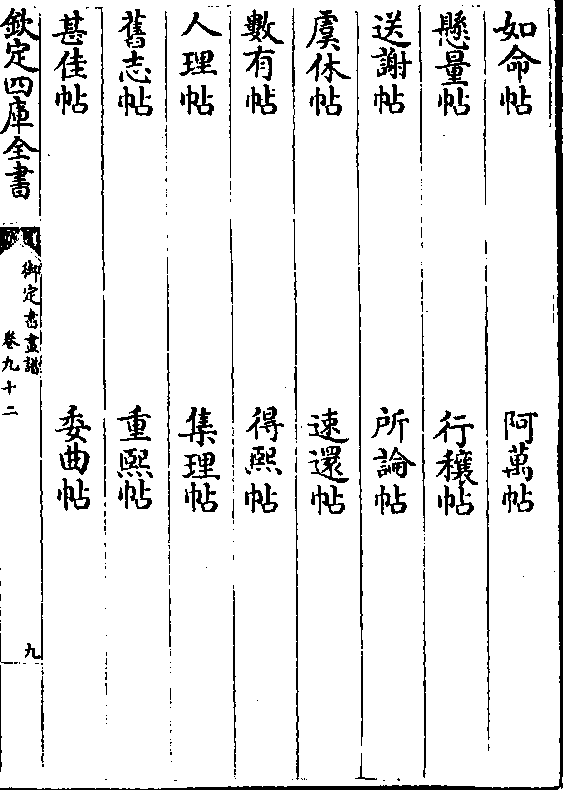 如命帖　阿萬帖
懸量帖　行穰帖
送謝帖　所論帖
虞休帖　速還帖
數有帖　得熙帖
人理帖　集理帖
舊志帖　重熙帖
甚佳帖　委曲帖
欽定四庫全書　御定書畫譜　卷九十二　九